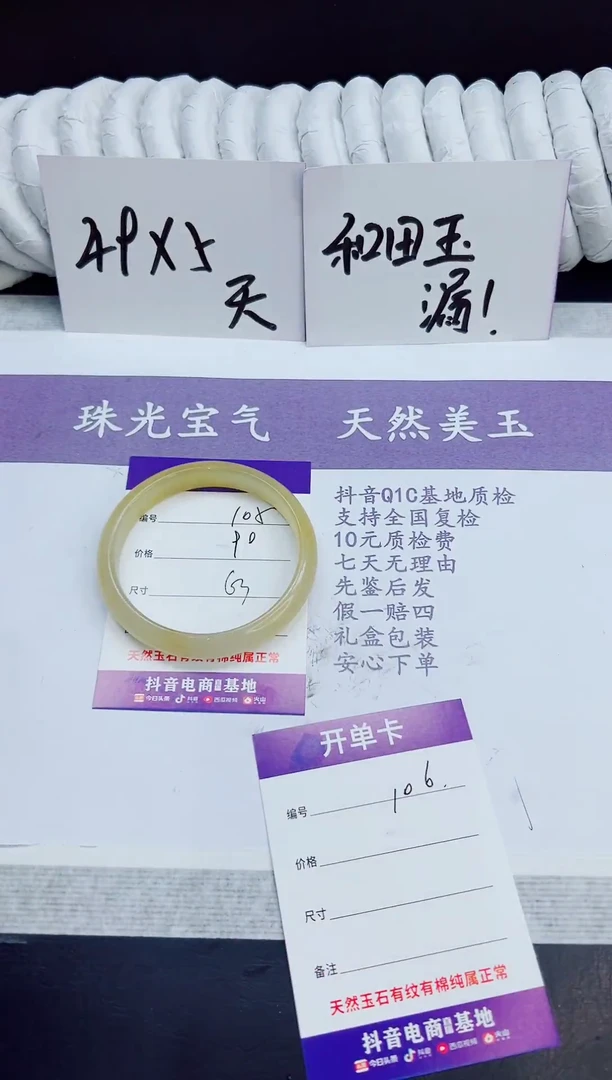 49X5
天
和田玉
漏!
珠光宝气 天然美玉
抖音Q1C基地质检
支持全国复检
10元质检费
七天无理由
先鉴后发
假一赔四
礼盒包装
安心下单
编号 105
价格 90
尺寸 63
天然玉石有纹有棉纯属正常
抖音电商 基地
今日头条 抖音 西瓜视频 火山
开单卡
编号 106.
价格
尺寸
备注
天然玉石有纹有棉纯属正常
抖音电商 基地
今日头条 抖音 西瓜视频 火山